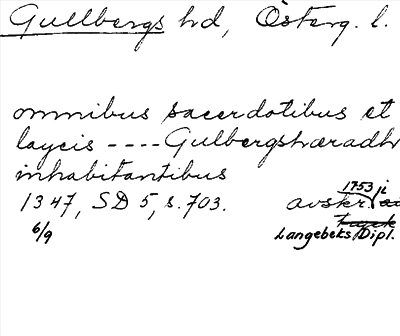 Gullbergs hd, Österg. l.
omnibus sacerdotibus et
laycis ---- Gulbergshæradh
inhabitantibus
1347, SD 5, s. 703. avskr. 1753 i
6/9 Langebeks Dipl.